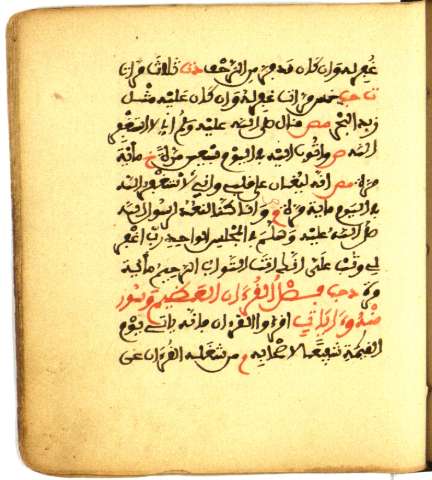 غفر له وان كان قد فر من الزحف دت ثلاثا مرات
ت حب خمس مرات غفر له وان كان عليه مثل
زبد البحر مص فقال صلى الله عليه وسلم اني لاستغفر
الله ص واتوب اليه في اليوم سبعين مرة خ مائة
مرة مص انه ليغان على قلبي واني لاستغفر الله
في اليوم مائة مرة م وانا كنا لنعد لرسول الله
صلى الله عليه وسلم في المجلس الواحد رب اغفر
لي وتب علي انك انت التواب الرحيم مائة
مرة د حب فضل القرءان العظيم وسور
منه وءايات اقرءوا القرءان فانه ياتي يوم
القيمة شفيعا لاصحابه م من شغله القرءان عن